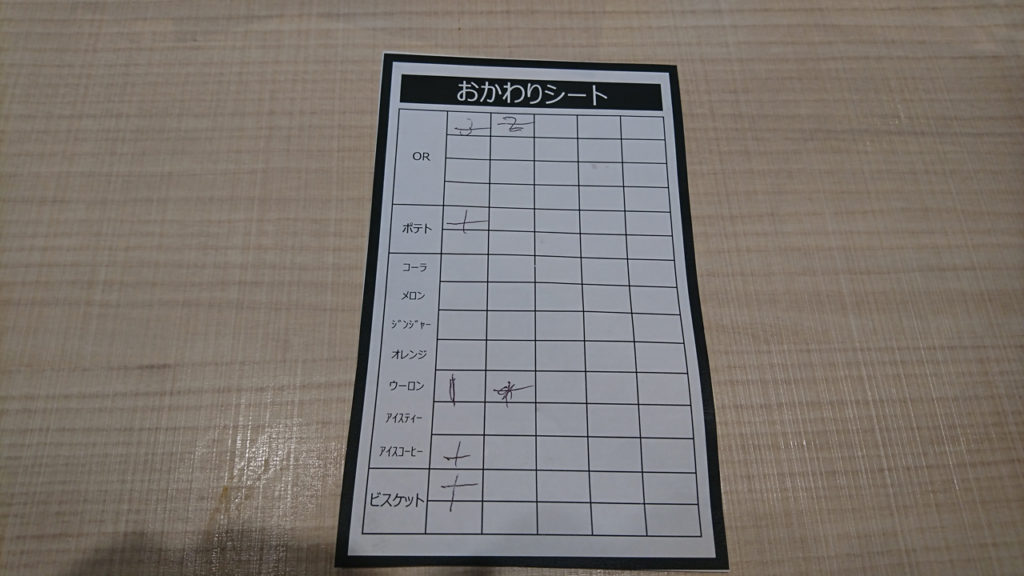 おかわりシート
OR 3 2
ポテト 1
コーラ
メロン
ジンジャー
オレンジ
ウーロン 1
アイスティー
アイスコーヒー 1
ビスケット 1